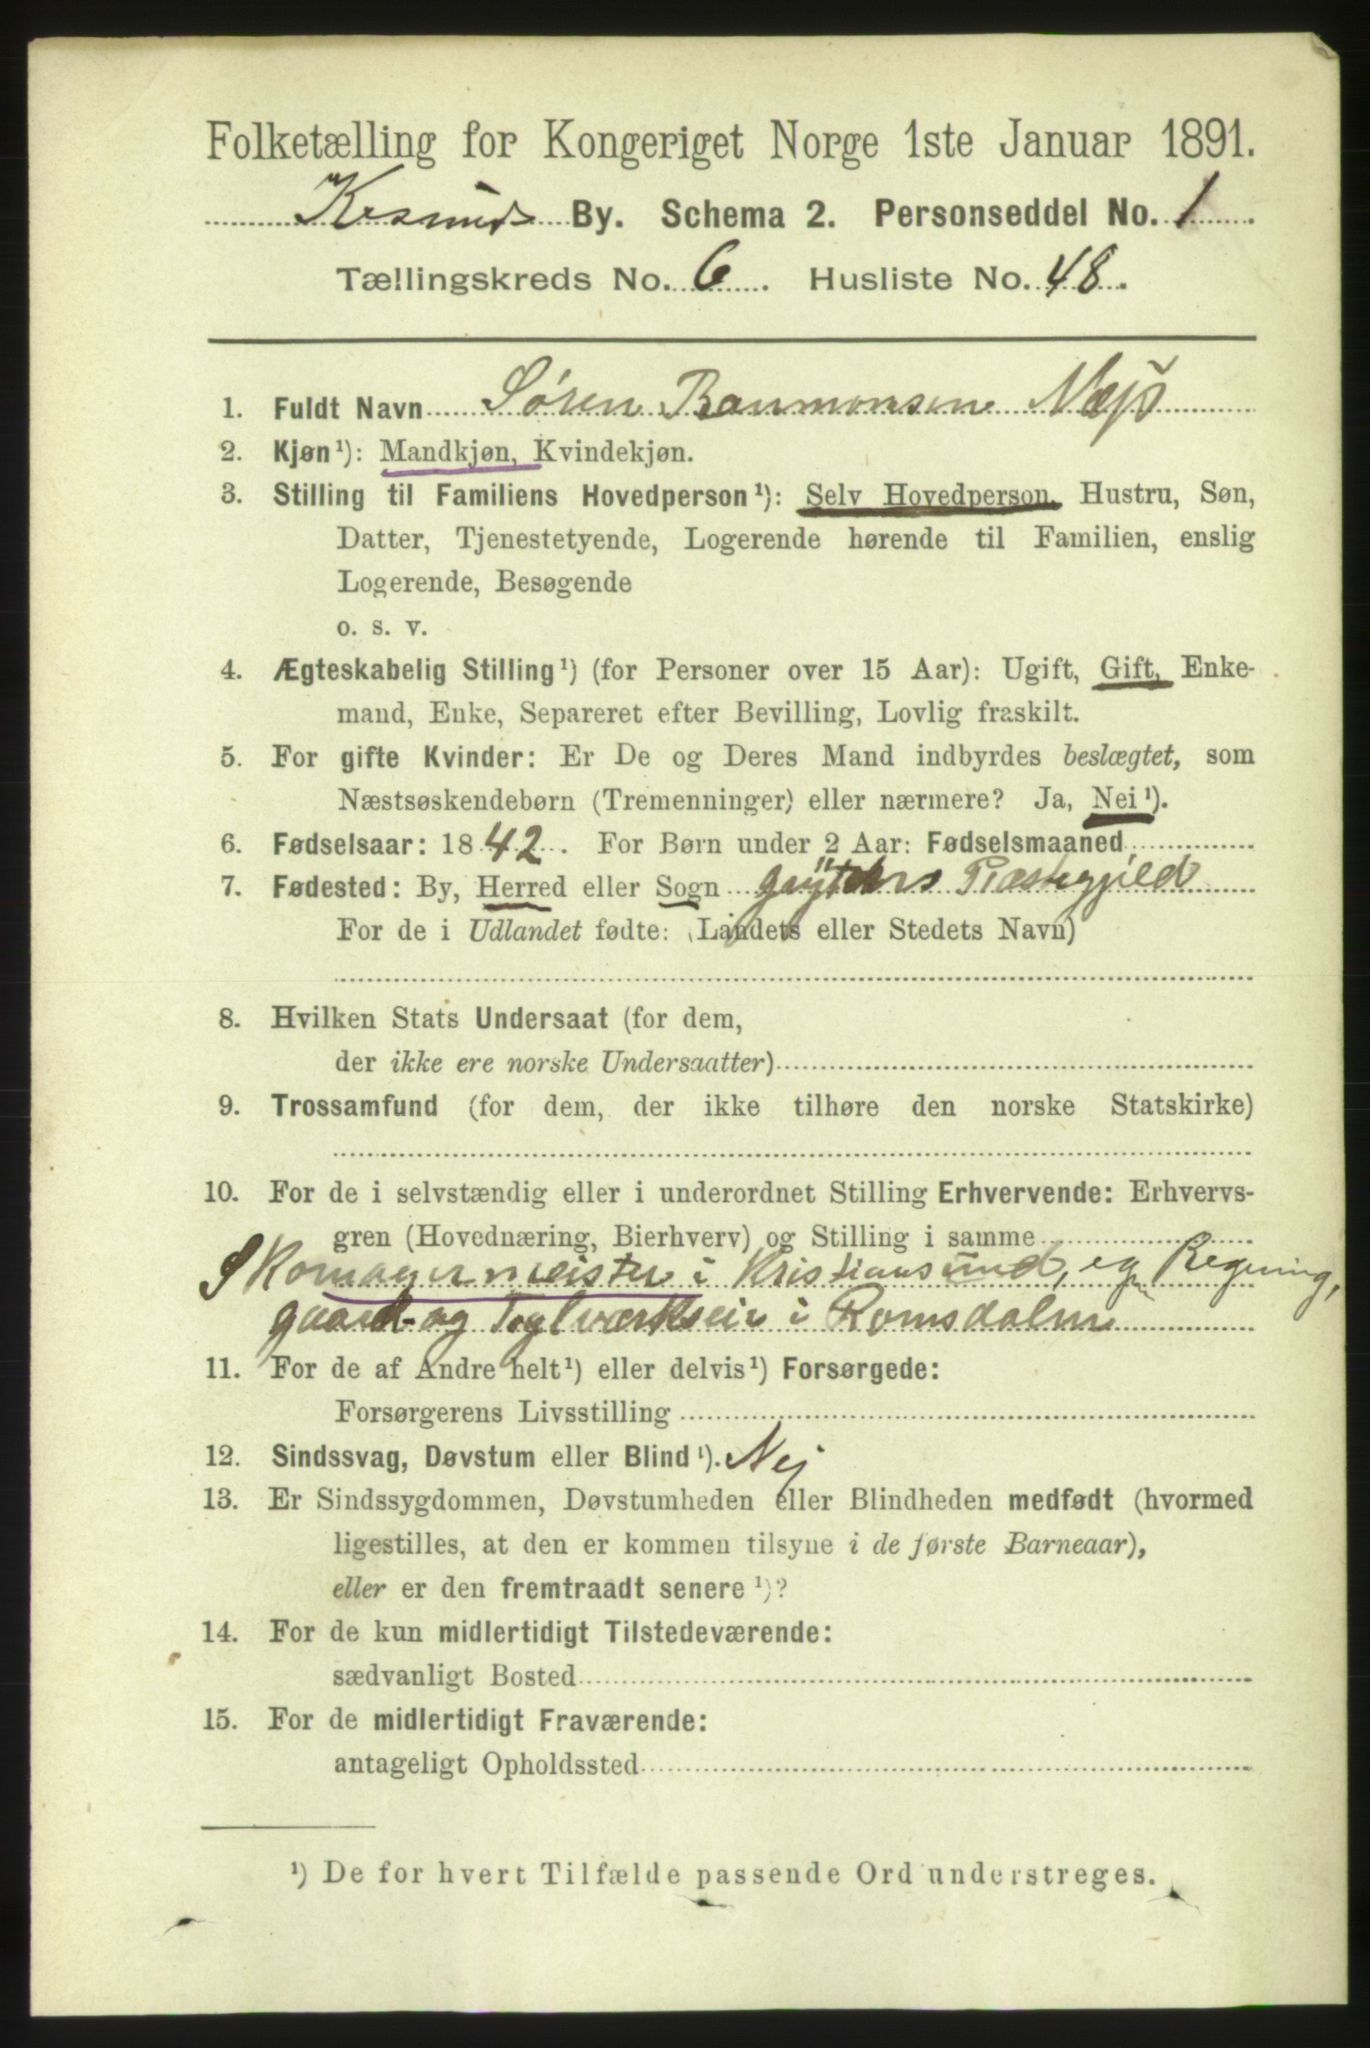 Folketælling for Kongeriget Norge 1ste Januar 1891.
Krsund By. Schema 2. Personseddel No. 1.
Tællingskreds No. 6. Husliste No. 48.
1. Fuldt Navn Søren
2. Kjøn ¹): Mandkjøn, Kvindekjøn.
3. Stilling til Familiens Hovedperson ¹): Selv Hovedperson, Hustru, Søn,
Datter, Tjenestetyende, Logerende hørende til Familien, enslig
Logerende, Besøgende
o. s. v.
4. Ægteskabelig Stilling ¹) (for Personer over 15 Aar): Ugift, Gift, Enke-
mand, Enke, Separeret efter Bevilling, Lovlig fraskilt.
5. For gifte Kvinder: Er De og Deres Mand indbyrdes beslægtet, som
Næstsøskendebørn (Tremenninger) eller nærmere? Ja, Nei ¹).
6. Fødselsaar: 1842. For Børn under 2 Aar: Fødselsmaaned
7. Fødested: By, Herred eller Sogn Præstegjeld
For de i Udlandet fødte: (Landets eller Stedets Navn)
8. Hvilken Stats Undersaat (for dem,
der ikke ere norske Undersaatter)
9. Trossamfund (for dem, der ikke tilhøre den norske Statskirke)
10. For de i selvstændig eller i underordnet Stilling Erhvervende: Erhvervs-
gren (Hovednæring, Bierhverv) og Stilling i samme
Skomagermeister i Kristiansund,
gaard og Teglværkseier i Romsdalen
11. For de af Andre helt ¹) eller delvis ¹) Forsørgede:
Forsørgerens Livsstilling
12. Sindssvag, Døvstum eller Blind ¹). Nej
13. Er Sindssygdommen, Døvstumheden eller Blindheden medfødt (hvormed
ligestilles, at den er kommen tilsyne i de første Barneaar),
eller er den fremtraadt senere ¹)?
14. For de kun midlertidigt Tilstedeværende:
sædvanligt Bosted
15. For de midlertidigt Fraværende:
antageligt Opholdssted
¹) De for hvert Tilfælde passende Ord understreges.